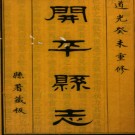 道光癸未重修
開平縣志
縣署藏板